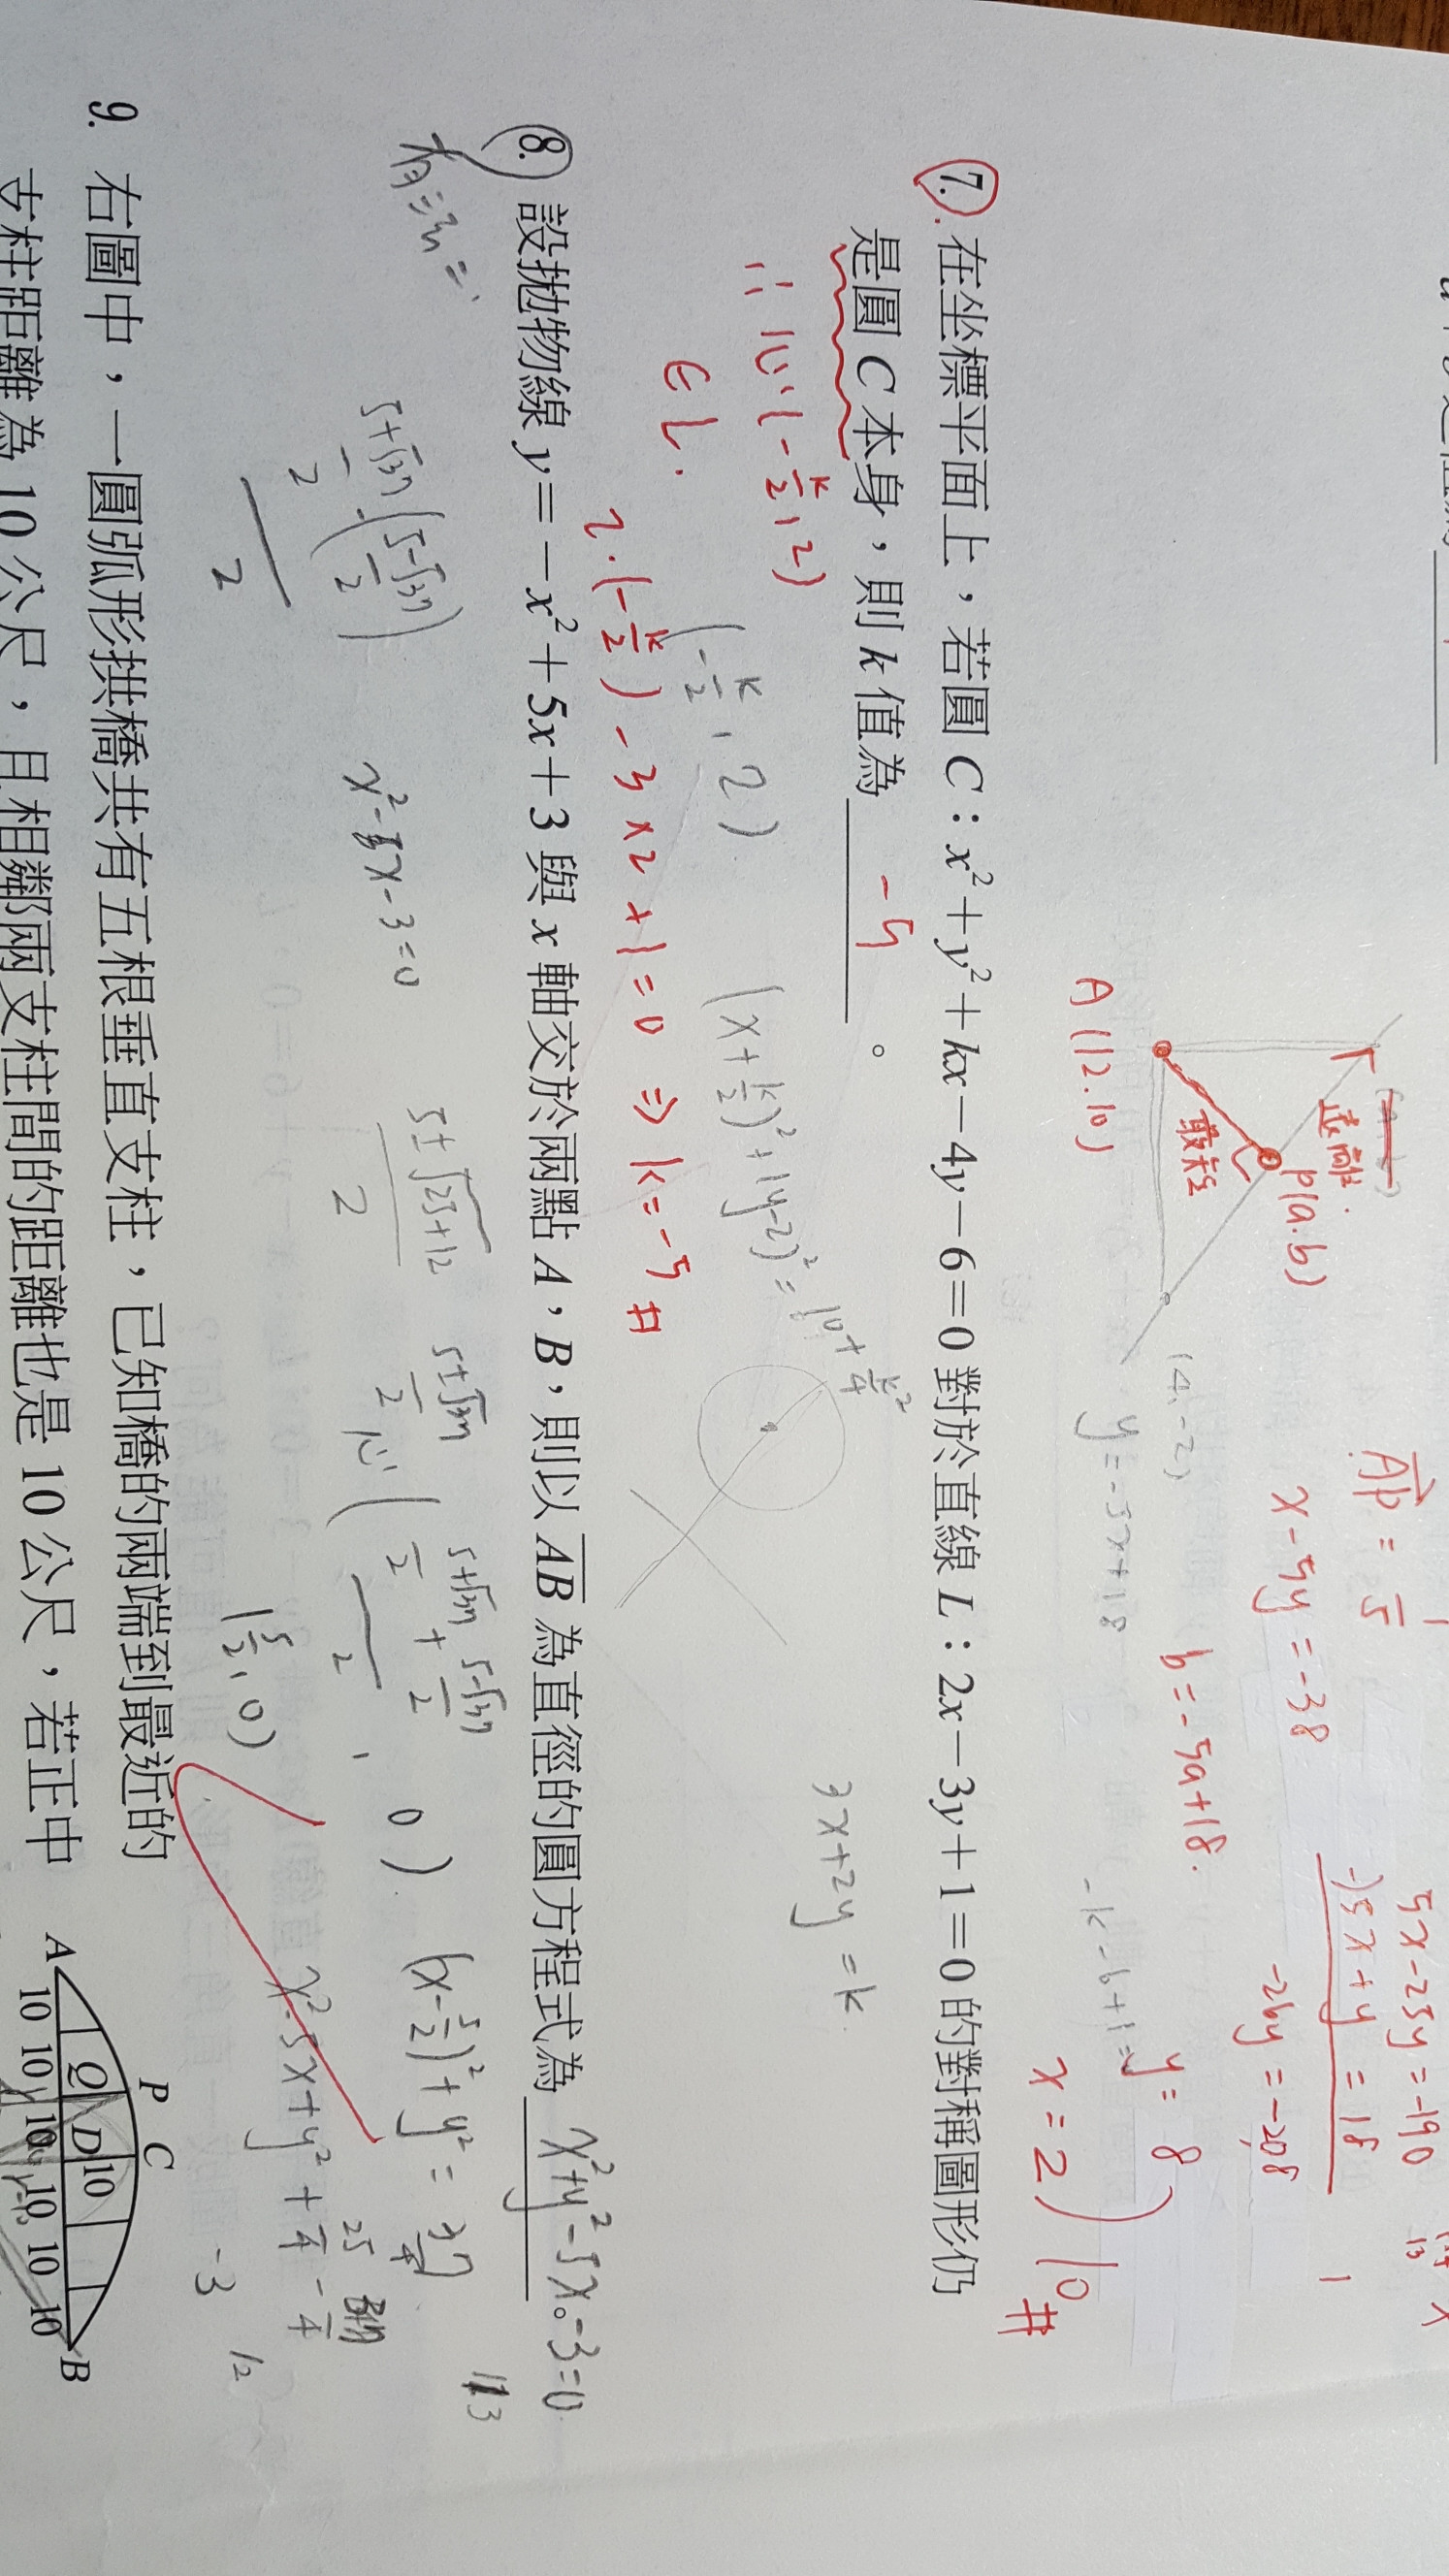 5x-25y=-190
-)5x+y=18
-26y=-208
x-5y=-38
b=-5a+18.
y=8
x=2
10#
P(a.b)
最短
A(12.10)
(4,-2)
y=-5x+18
7. 在坐標平面上，若圓 C：x²+y²+kx-4y-6=0 對於直線 L：2x-3y+1=0 的對稱圖形仍
是圓 C 本身，則 k 值為 -5 。
3x+2y=k
∴ 心(-k/2,2)
(x+k/2)²+(y-2)²=10+k²/4
(-k/2,2)
∈L.
2·(-k/2)-3×2+1=0 ⇒ k=-5 #
8. 設拋物線 y=-x²+5x+3 與 x 軸交於兩點 A，B，則以 AB 為直徑的圓方程式為 x²+y²-5x-3=0 。
5±√25+12/2
5±√37/2
心(5+√37/2+5-√37/2/2,0)
(x-5/2)²+y²=37/4
5+√37/2-(5-√37/2)/2
x²-5x-3=0
x²-5x+y²+25/4-37/4
(5/2,0)
-3
12
9. 右圖中，一圓弧形拱橋共有五根垂直支柱，已知橋的兩端到最近的
支柱距離為 10 公尺，且相鄰兩支柱間的距離也是 10 公尺，若正中
P C
Q D 10
A B
10 10 10 10 10 10